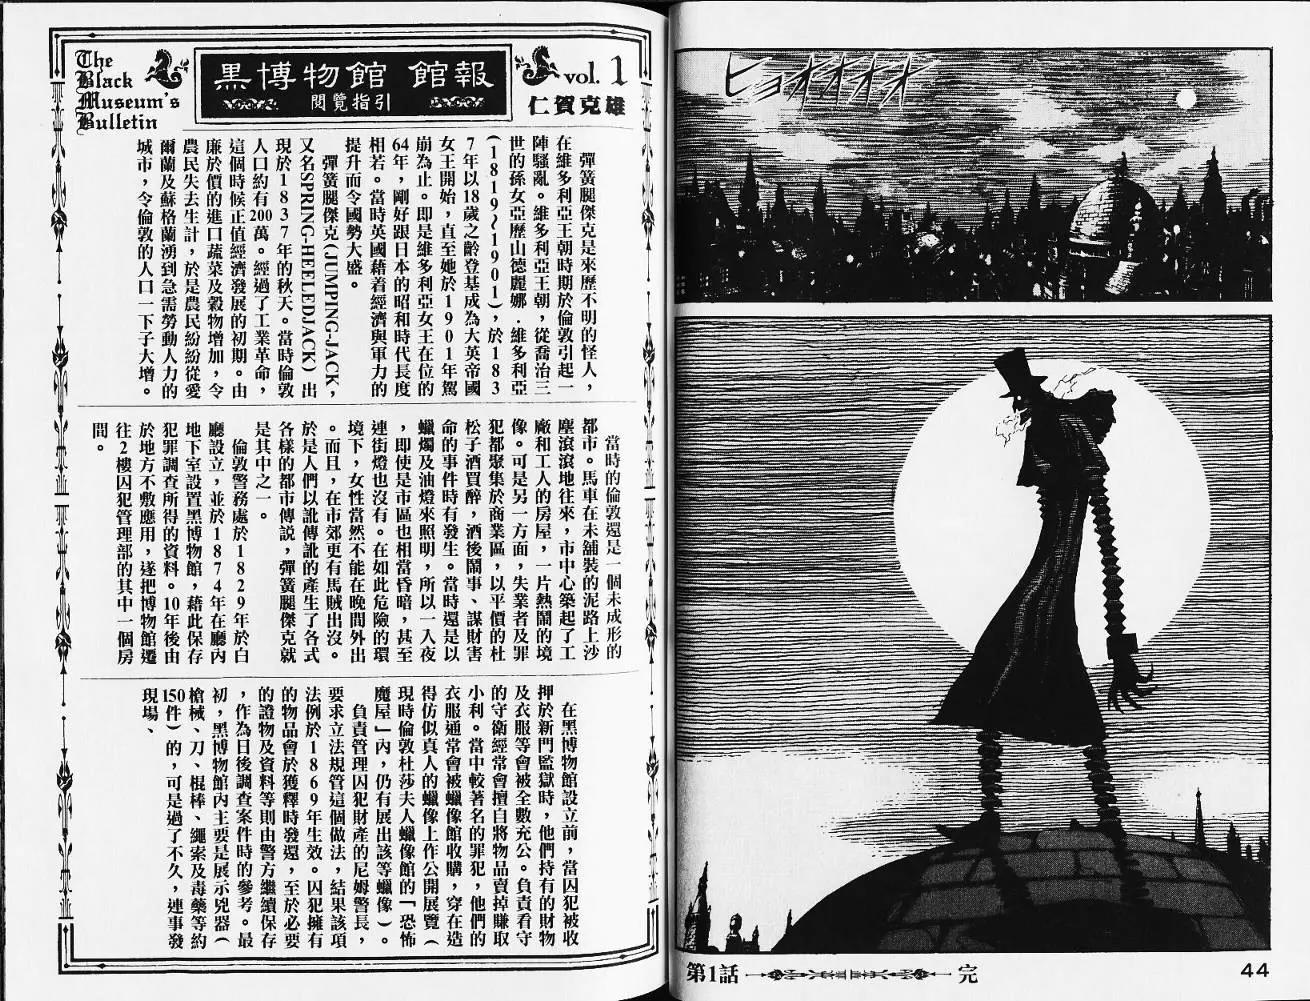 ヒョオオオオ
第1話
完
44
The
Black
Museum's
Bulletin
黒博物館 館報
閱覽指引
vol. 1
仁賀克雄
彈簧腿傑克是來歷不明的怪人，
在維多利亞王朝時期於倫敦引起一
陣騷亂。維多利亞王朝，從喬治三
世的孫女亞歷山德麗娜．維多利亞
（1819～1901），於183
7年以18歲之齡登基成為大英帝國
女王開始，直至她於1901年駕
崩為止。即是維多利亞女王在位的
64年，剛好跟日本的昭和時代長度
相若。當時英國藉着經濟與軍力的
提升而令國勢大盛。
彈簧腿傑克(JUMPING-JACK，
又名SPRING-HEELEDJACK）出
現於1837年的秋天。當時倫敦
人口約有200萬。經過了工業革命，
這個時候正值經濟發展的初期。由
廉於價的進口蔬菜及穀物增加，令
農民失去生計，於是農民紛紛從愛
爾蘭及蘇格蘭湧到急需勞動人力的
城市，令倫敦的人口一下子大增。
當時的倫敦還是一個未成形的
都市。馬車在未舖裝的泥路上沙
塵滾滾地往來，市中心築起了工
廠和工人的房屋，一片熱鬧的境
像。可是另一方面，失業者及罪
犯都聚集於商業區，以平價的杜
松子酒買醉，酒後鬧事、謀財害
命的事件時有發生。當時還是以
蠟燭及油燈來照明，所以一入夜
，即使是市區也相當昏暗，甚至
連街燈也沒有。在如此危險的環
境下，女性當然不能在晚間外出
。而且，在市郊更有馬賊出沒。
於是人們以訛傳訛的產生了各式
各樣的都市傳説，彈簧腿傑克就
是其中之一。
倫敦警務處於1829年於白
廳設立，並於1874年在廳內
地下室設置黑博物館，藉此保存
犯罪調查所得的資料。10年後由
於地方不敷應用，遂把博物館遷
往2樓囚犯管理部的其中一個房
間。
在黑博物館設立前，當囚犯被收
押於新門監獄時，他們持有的財物
及衣服等會被全數充公。負責看守
的守衛經常會擅自將物品賣掉賺取
小利。當中較著名的罪犯，他們的
衣服通常會被蠟像館收購，穿在造
得仿似真人的蠟像上作公開展覽（
現時倫敦杜莎夫人蠟像館的「恐怖
魔屋」內，仍有展出該等蠟像）。
負責管理囚犯財產的尼姆警長，
要求立法規管這個做法，結果該項
法例於1869年生效。囚犯擁有
的物品會於獲釋時發還，至於必要
的證物及資料等則由警方繼續保存
，作為日後調查案件時的參考。最
初，黑博物館內主要是展示兇器（
槍械、刀、棍棒、繩索及毒藥等約
150件）的，可是過了不久，連事發
現場、